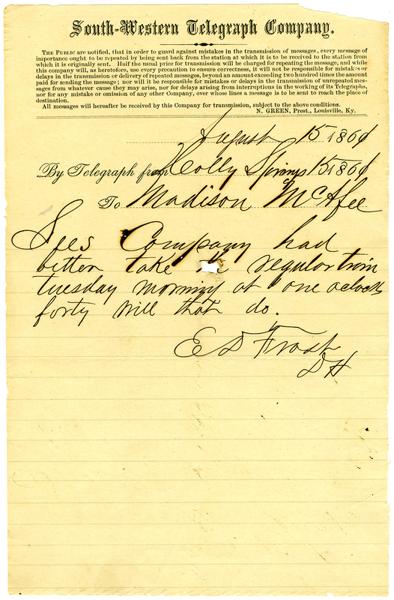 South-Western Telegraph Company.
THE PUBLIC are notified, that in order to guard against mistakes in the transmission of messages, every message of
importance ought to be repeated by being sent back from the station at which it is to be received to the station from
which it is originally sent. Half the usual price for transmission will be charged for repeating the message, and while
this company will, as heretofore, use every precaution to ensure correctness, it will not be responsible for mistakes or
delays in the transmission or delivery of repeated messages, beyond an amount exceeding two hundred times the amount
paid for sending the message; nor will it be responsible for mistakes or delays in the transmission of unrepeated mes-
sages from whatever cause they may arise, nor for delays arising from interruptions in the working of its Telegraphs,
nor for any mistake or omission of any other Company, over whose lines a message is to be sent to reach the place of
destination.
All messages will hereafter be received by this Company for transmission, subject to the above conditions.
N. GREEN, Prest., Louisville, Ky.
August 15 186
By Telegraph from Holly Springs 15 186
To Madison McAfee
Sees Company had
better take the regular train
tuesday morning at one oclock
forty will that do.
E D Frost
D H